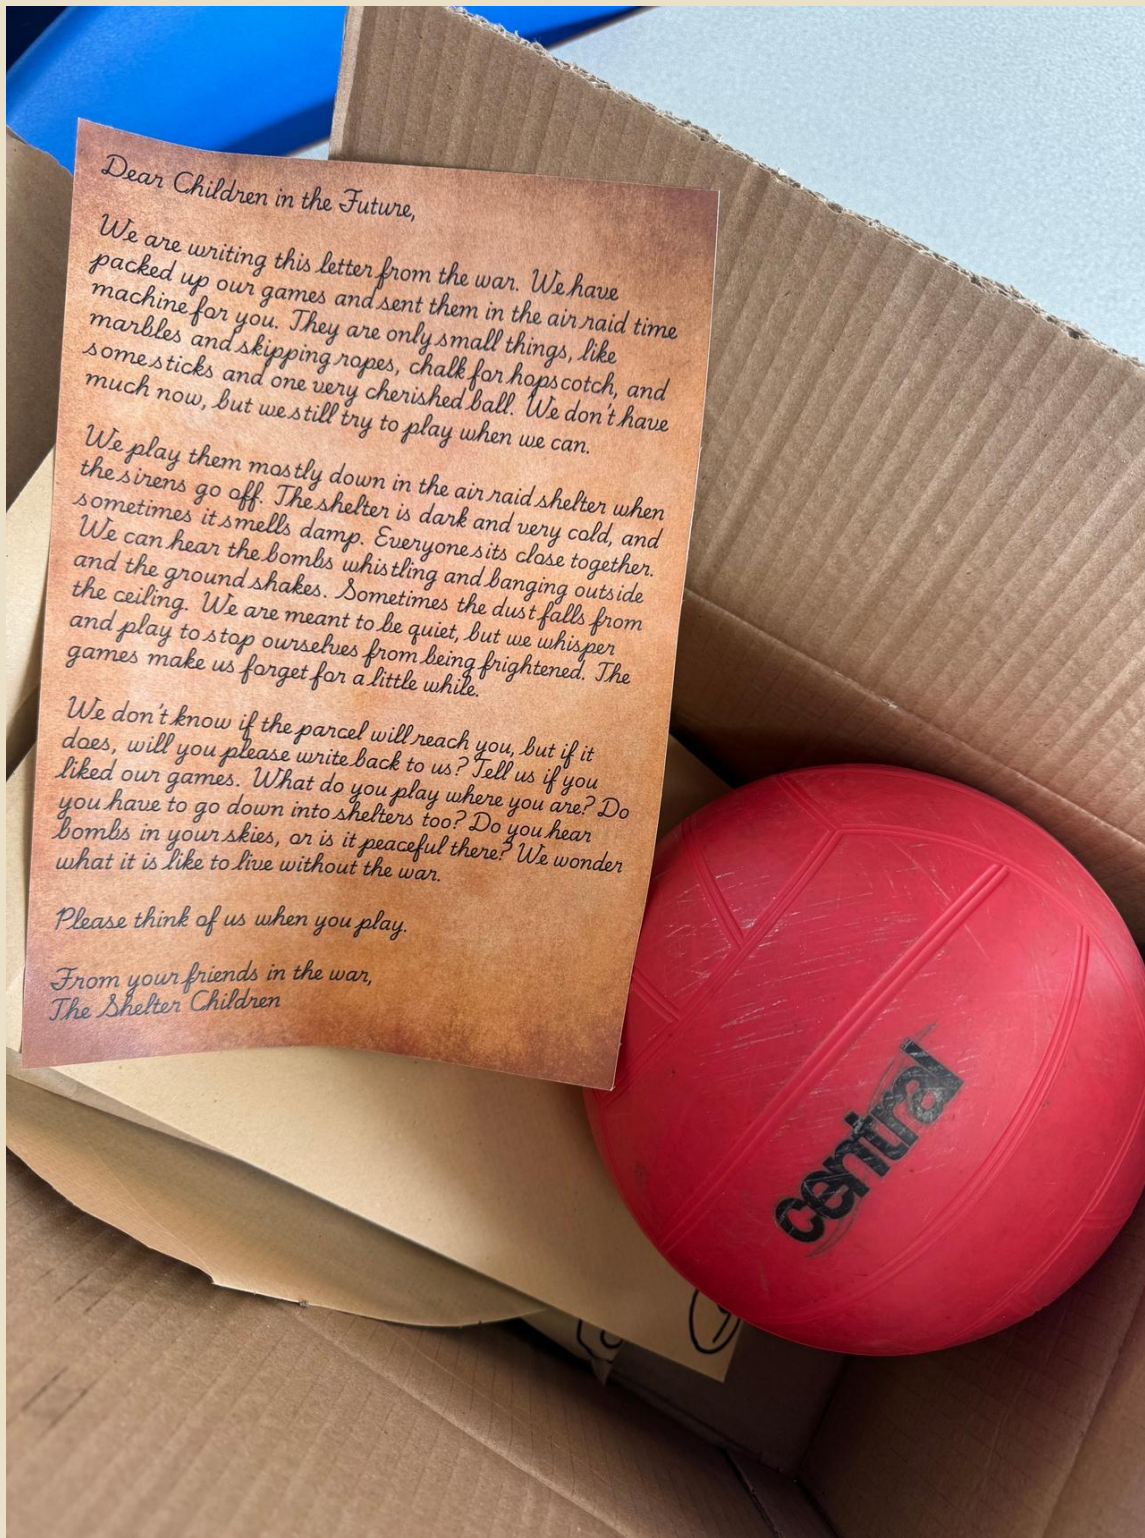 Dear Children in the Future,
We are writing this letter from the war. We have
packed up our games and sent them in the air raid time
machine for you. They are only small things, like
marbles and skipping ropes, chalk for hopscotch, and
some sticks and one very cherished ball. We don't have
much now, but we still try to play when we can.
We play them mostly down in the air raid shelter when
the sirens go off. The shelter is dark and very cold, and
sometimes it smells damp. Everyone sits close together.
We can hear the bombs whistling and banging outside
and the ground shakes. Sometimes the dust falls from
the ceiling. We are meant to be quiet, but we whisper
and play to stop ourselves from being frightened. The
games make us forget for a little while.
We don't know if the parcel will reach you, but if it
does, will you please write back to us? Tell us if you
liked our games. What do you play where you are? Do
you have to go down into shelters too? Do you hear
bombs in your skies, or is it peaceful there? We wonder
what it is like to live without the war.
Please think of us when you play.
From your friends in the war,
The Shelter Children
central